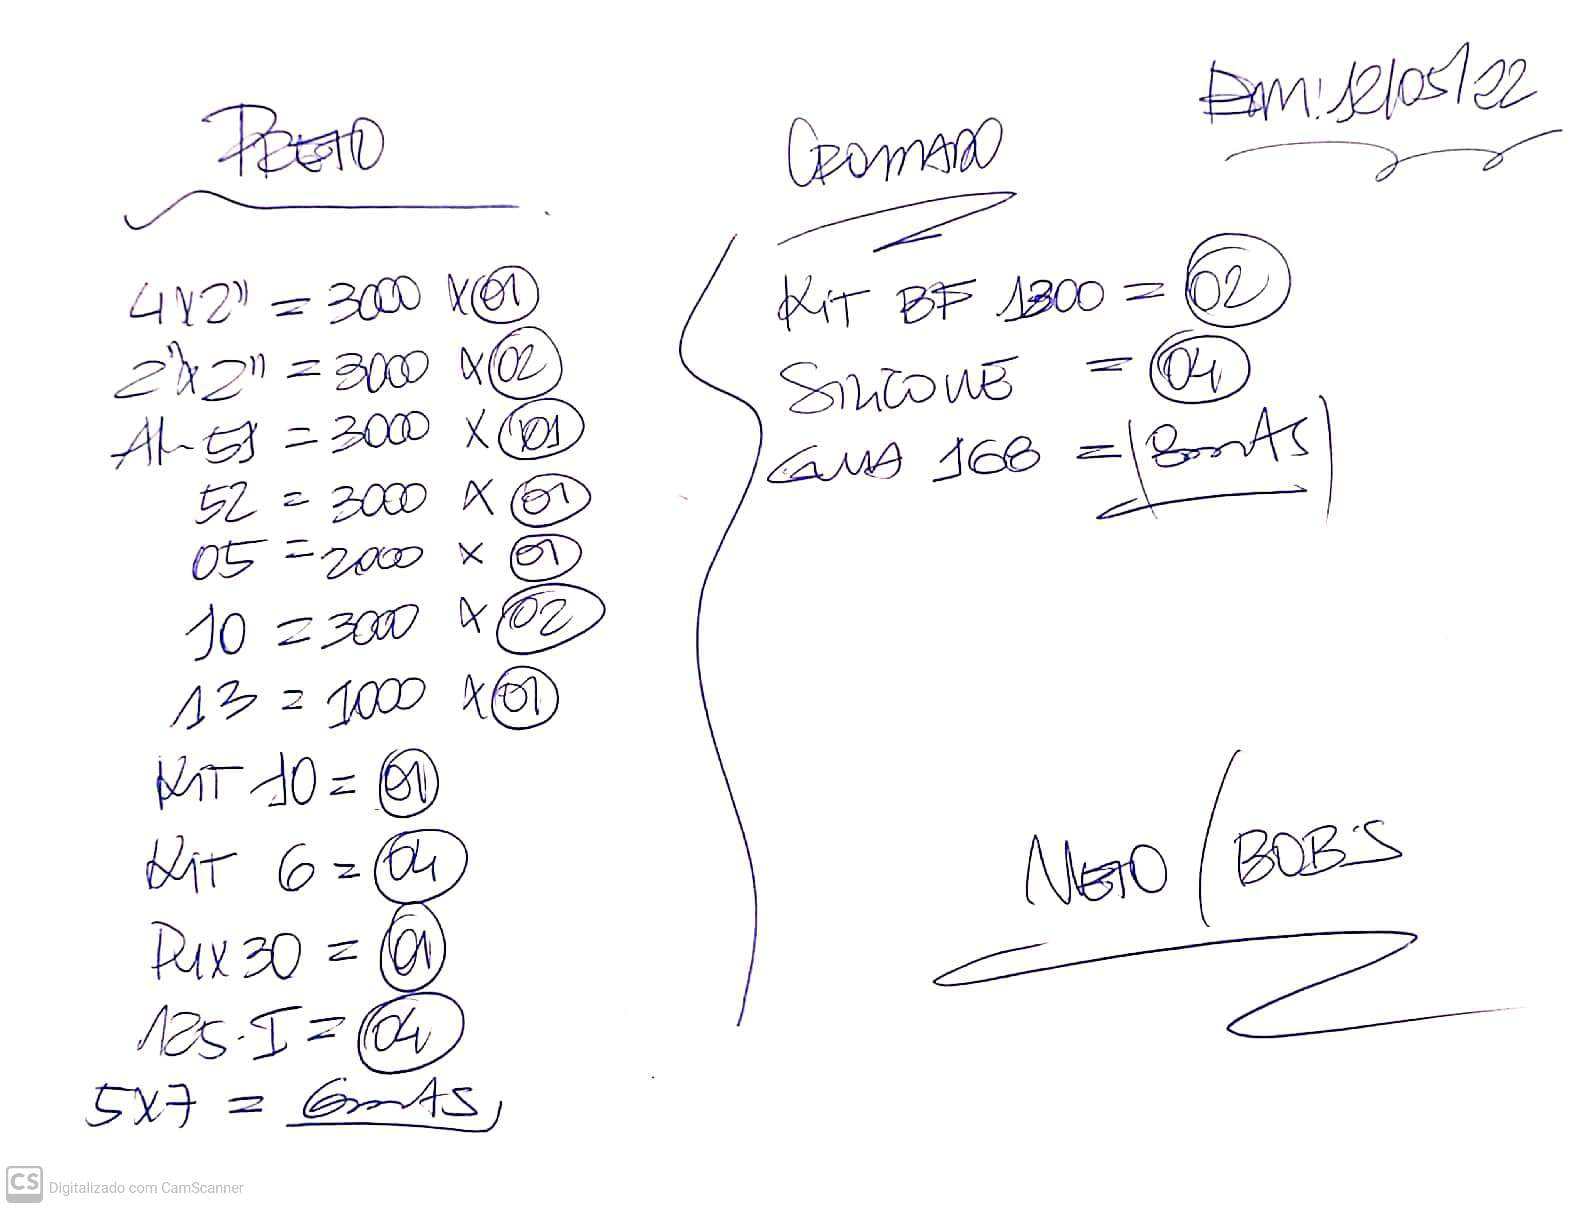 Em: 12/05/22
PRETO
4x2" = 3000 x 01
2"x2" = 3000 x 02
AL-51 = 3000 x 01
52 = 3000 x 01
05 = 2000 x 01
10 = 3000 x 02
13 = 1000 x 01
KIT 10 = 01
KIT 6 = 04
PUX 30 = 01
125-I = 04
5x7 =
CROMADO
KIT BF 1300 = 02
SILICONE = 04
GUIA 168 =
NETO / BOB'S
CS Digitalizado com CamScanner